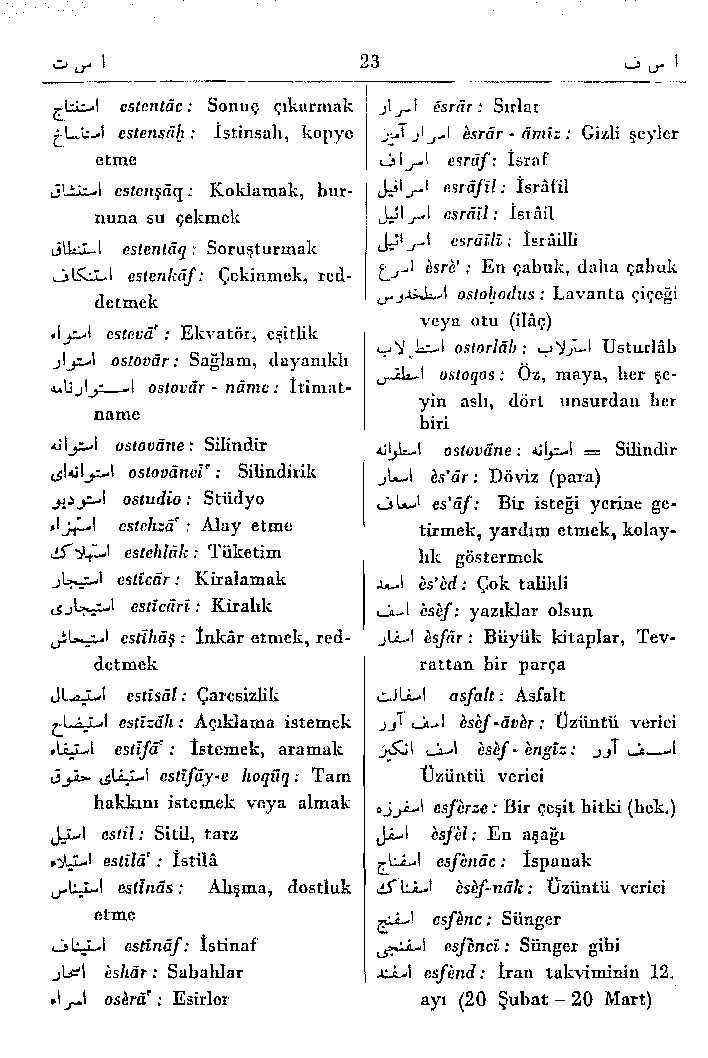 ا س ت 23 ا س ف
استنتاج estentâc : Sonuç çıkarmak
استنساخ estensâḫ : İstinsah, kopye
etme
استنشاق estenşâq : Koklamak, bur-
nuna su çekmek
استنطاق estentâq : Soruşturmak
استنكاف estenkâf : Çekinmek, red-
detmek
استواء estevâʿ : Ekvatör, eşitlik
استوار ostovâr : Sağlam, dayanıklı
استوارنامه ostovâr - nâme : İtimat-
name
استوانه ostovâne : Silindir
استوانه‌ای ostovâneîʿ : Silindirik
استوديو ostudio : Stüdyo
استهزاء estehzâʿ : Alay etme
استهلاك estehlâk : Tüketim
استيجار estîcâr : Kiralamak
استيجارى estîcârî : Kiralık
استيحاش estîhâş : İnkâr etmek, red-
detmek
استيصال estîsâl : Çaresizlik
استيضاح estîzâh : Açıklama istemek
استيفاء estîfâʿ : İstemek, aramak
استيفاى حقوق estîfây-e hoqûq : Tam
hakkını istemek veya almak
استيل estil : Sitil, tarz
استيلاء estîlâʿ : İstilâ
استيناس estînâs : Alışma, dostluk
etme
استيناف estînâf : İstinaf
اسحار èshâr : Sabahlar
اسراء oserâʿ : Esirler
اسرار èsrâr : Sırlar
اسرار آميز èsrâr - âmîz : Gizli şeyler
اسراف esrâf : İsraf
اسرافيل esrâfîl : İsrâfil
اسرائيل esrâîl : İsrâil
اسرائيل esrâîlî : İsrâilli
اسرع èsrè' : En çabuk, daha çabuk
اسطخدوس ostoḫodus : Lavanta çiçeği
veya otu (ilâç)
اسطرلاب ostorlâb : استرلاب Usturlâb
اسطقس ostoqos : Öz, maya, her şe-
yin aslı, dört unsurdan her
biri
اسطوانه ostovâne : استوانه = Silindir
اسعار ès'âr : Döviz (para)
اسعاف es'âf : Bir isteği yerine ge-
tirmek, yardım etmek, kolay-
lık göstermek
اسعد ès'èd : Çok talihli
اسف èsèf : yazıklar olsun
اسفار èsfâr : Büyük kitaplar, Tev-
rattan bir parça
اسفالت asfalt : Asfalt
اسف آور èsèf-âvèr : Üzüntü verici
اسف انگيز èsèf - èngîz : اسف آور
Üzüntü verici
اسفرزه esfèrze : Bir çeşit bitki (hek.)
اسفل èsfèl : En aşağı
اسفناج esfènâc : Ispanak
اسفناك èsèf-nâk : Üzüntü verici
اسفنج esfènc : Sünger
اسفنجى esfèncî : Sünger gibi
اسفند esfènd : İran takviminin 12.
ayı (20 Şubat – 20 Mart)